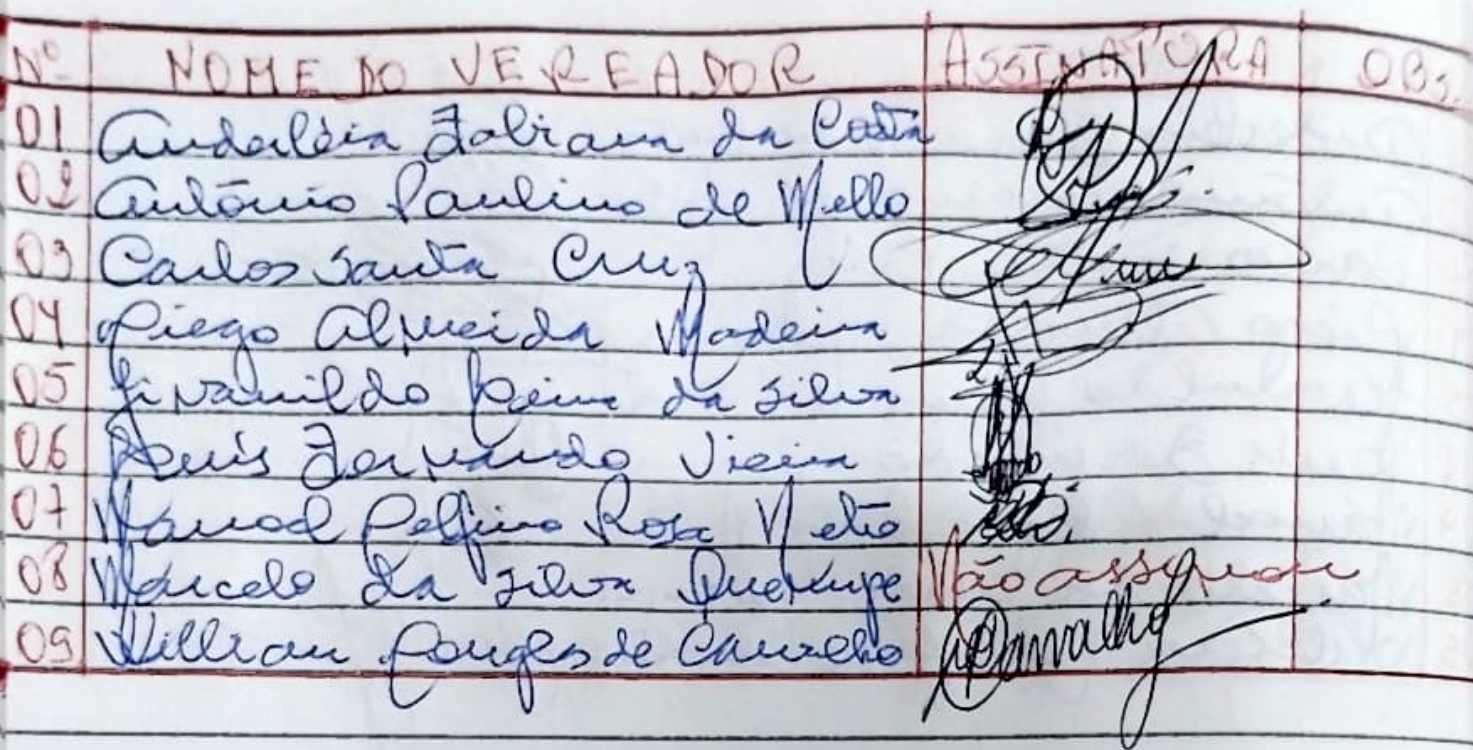 Nº NOME DO VEREADOR ASSINATURA OBS.
01 Anderléia Fabiana da Costa
02 Antônio Paulino de Mello
03 Carlos Santa Cruz
04 Diego Almeida Madeira
05 Givanildo Paiva da Silva
06 Luís Fernando Vieira
07 Manoel Delfino Rosa Neto
08 Marcelo da Silva Não assinou
09 Willian de Carvalho Carvalho